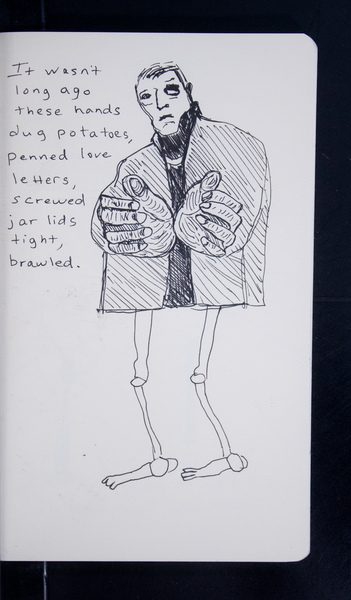 It wasn't
long ago
these hands
dug potatoes,
penned love
letters,
screwed
jar lids
tight,
brawled.